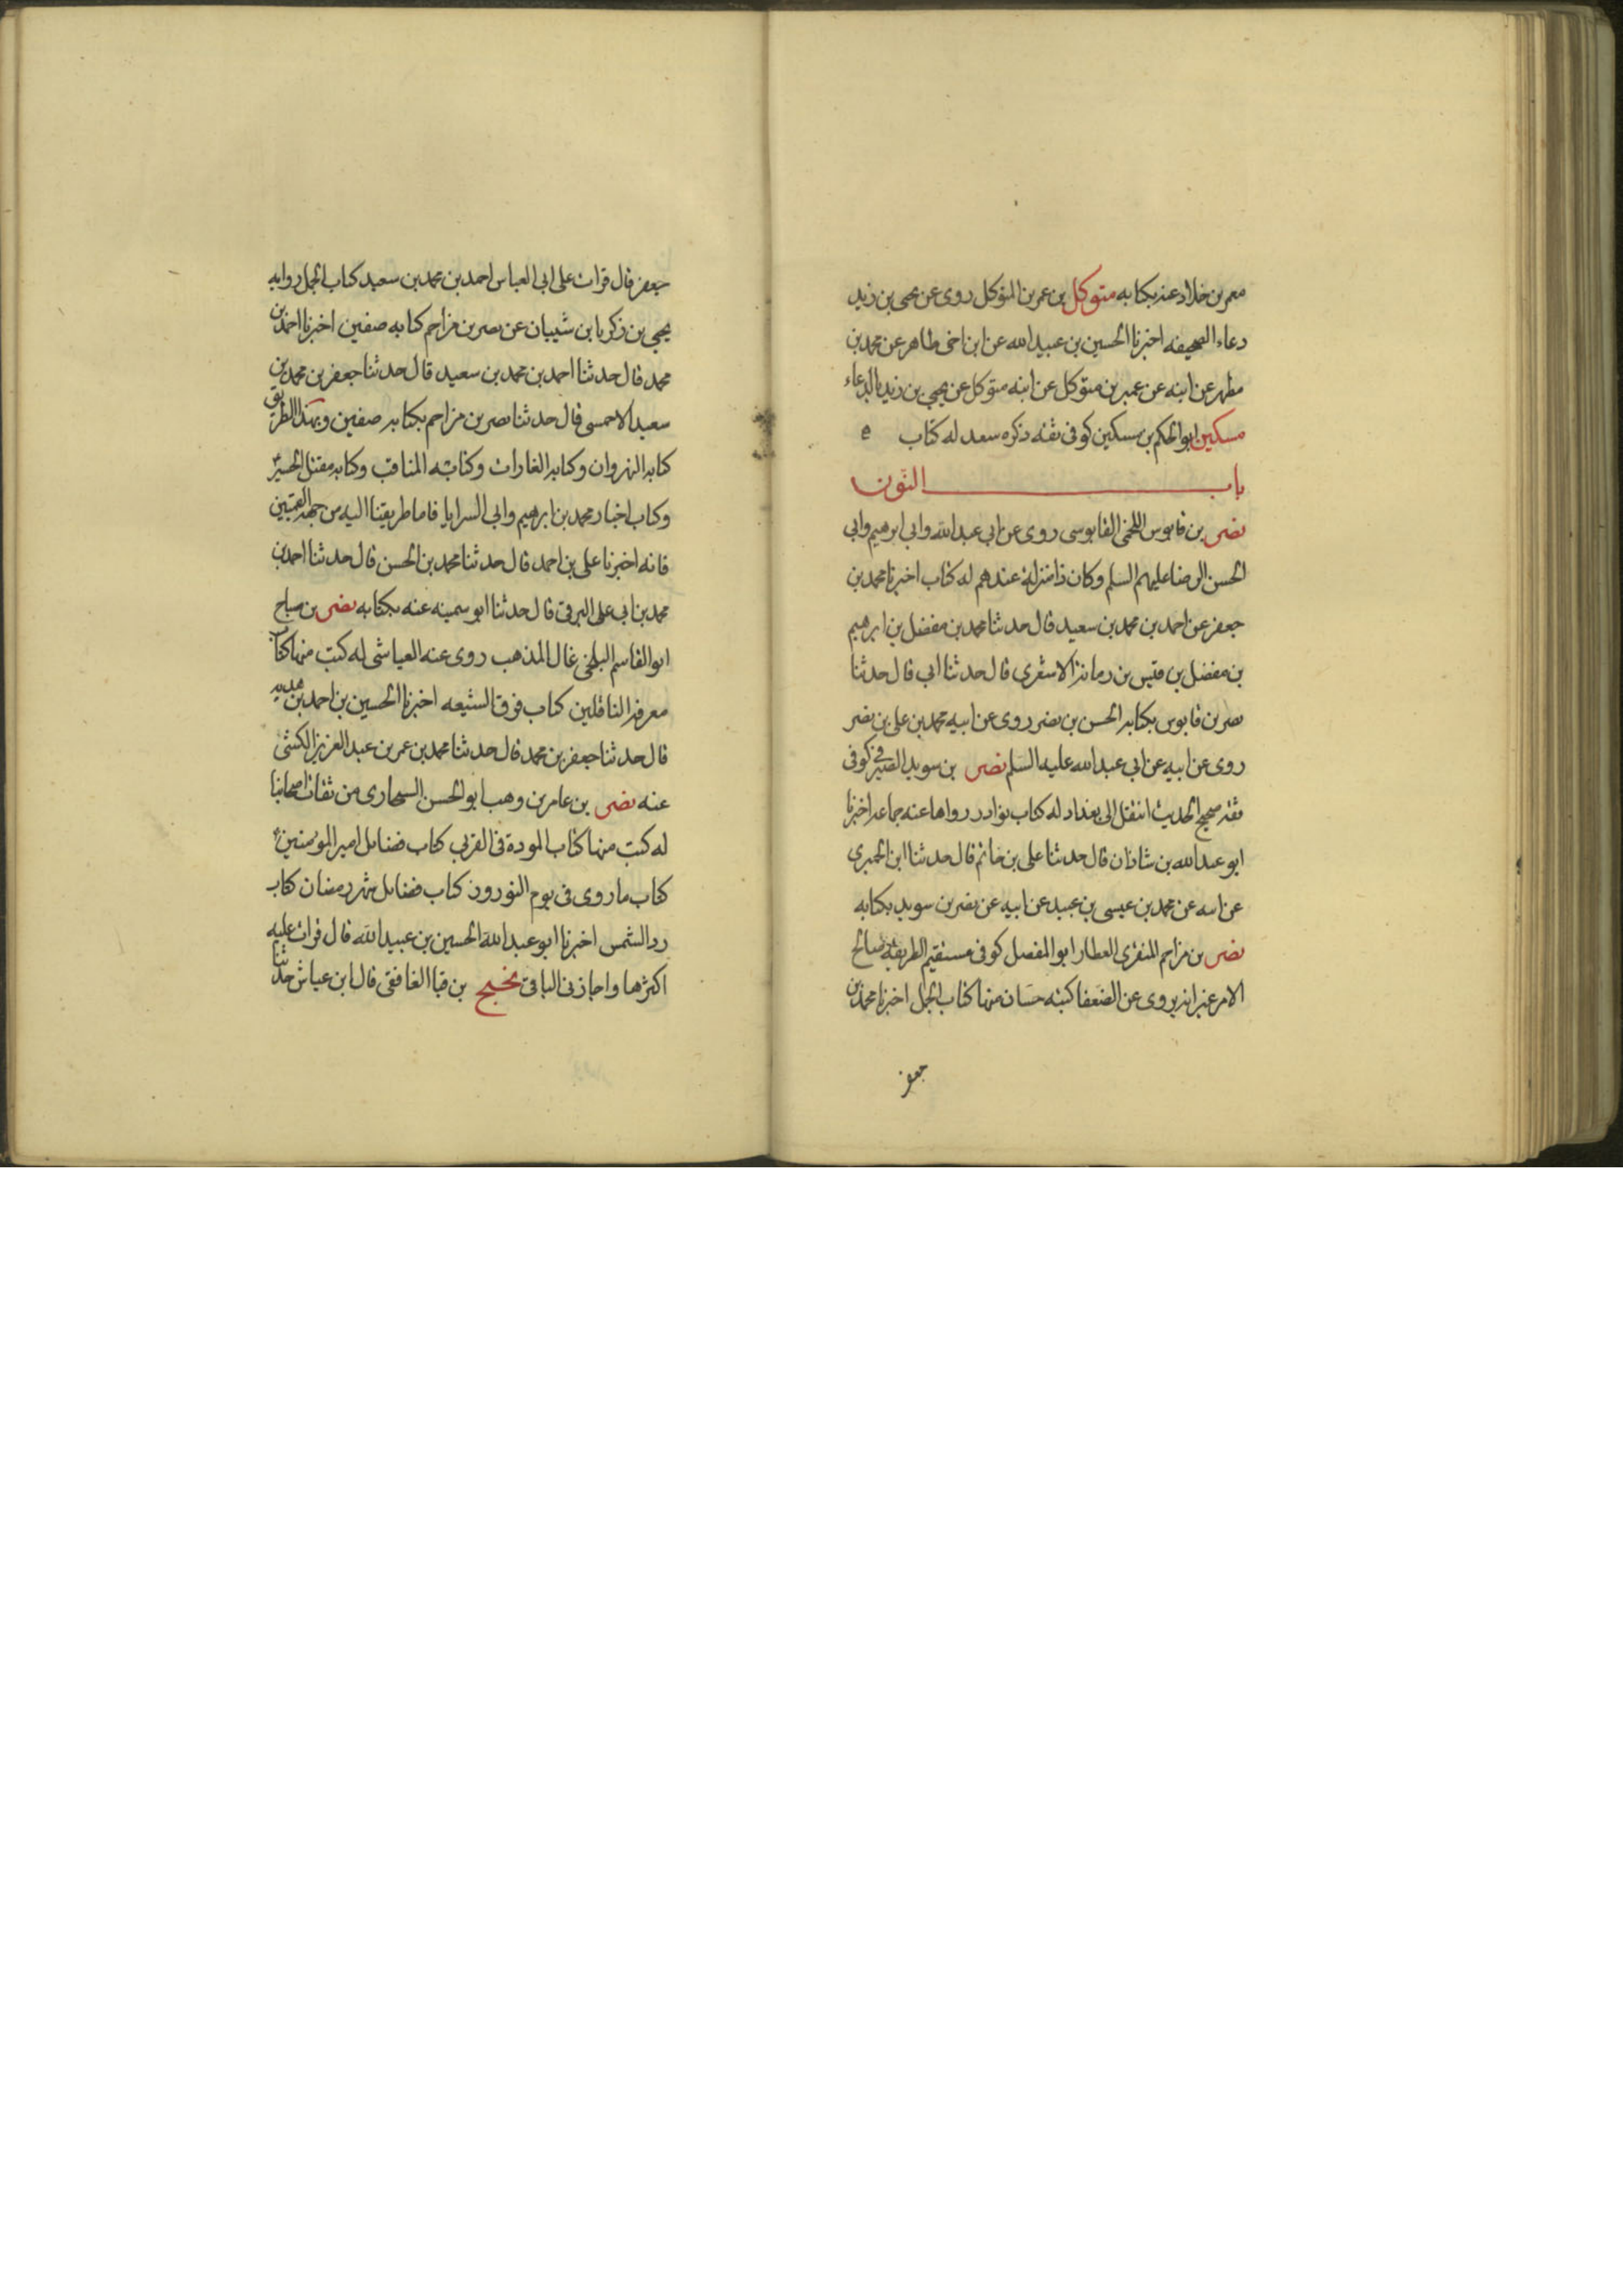 معمر بن خلاد عنه بكتابه متوكل بن عمر بن المتوكل روى عن يحيى بن زيد
دعاء الصحيفه اخبرنا الحسين بن عبيد الله عن ابن اخى طاهر عن محمد بن
مطهر عن ابيه عن عمير بن متوكل عن ابيه متوكل عن يحيى بن زيد بالدعاء
مسكين ابو الحكم بن مسكين كوفى ثقه ذكره سعد له كتاب
باب النون
نصر بن قابوس اللخمى القابوسى روى عن ابى عبد الله وابى ابرهيم وابى
الحسن الرضا عليهم السلم وكان ذا منزلة عندهم له كتاب اخبرنا محمد بن
جعفر عن احمد بن محمد بن سعيد قال حدثنا محمد بن مفضل بن ابرهيم
بن مفضل بن قيس بن رمانة الاشعرى قال حدثنا ابى قال حدثنا
نصر بن قابوس بكتابه الحسن بن نصر روى عن ابيه محمد بن على بن نصر
روى عن ابيه عن ابى عبد الله عليه السلم نصر بن سويد الصيرفى كوفى
ثقة صحيح الحديث انتقل الى بغداد له كتاب نوادر رواها عنه جماعة اخبرنا
ابو عبد الله بن شاذان قال حدثنا على بن حاتم قال حدثنا ابن الحميرى
عن ابيه عن محمد بن عيسى بن عبيد عن ابيه عن نضر بن سويد بكتابه
نصر بن مزاحم المنقرى العطار ابو المفضل كوفى مستقيم الطريقة صالح
الامر غير انه يروى عن الضعفا كتبه حسان منها كتاب الجمل اخبرنا محمد بن
جعفر
جعفر قال قرات على ابى العباس احمد بن محمد بن سعيد كتاب الجمل روايه
يحيى بن زكريا بن شيبان عن نصر بن مزاحم كتابه صفين اخبرنا احمد بن
محمد قال حدثنا احمد بن محمد بن سعيد قال حدثنا جعفر بن محمد بن
سعيد الاحمسى قال حدثنا نصر بن مزاحم بكتابه صفين وبهذا الطريق
كتابه النهروان وكتابه الغارات وكتابه المناقب وكتابه مقتل الحسين
وكتاب اخبار محمد بن ابرهيم وابى السرايا فاما طريقنا اليه من جهة القميين
فانه اخبرنا على بن احمد قال حدثنا محمد بن الحسن قال حدثنا احمد بن
محمد بن ابى على البرقى قال حدثنا ابو سمينه عنه بكتابه نصر بن صباح
ابو القاسم البلخى غال المذهب روى عنه العياشى له كتب منها كتاب
معرفة الناقلين كتاب فرق الشيعه اخبرنا الحسين بن احمد بن هديه
قال حدثنا جعفر بن محمد قال حدثنا محمد بن عمر بن عبد العزيز الكشى
عنه نصر بن عامر بن وهب ابو الحسن السنجارى من ثقات اصحابنا
له كتب منها كتاب المودة فى القربى كتاب فضايل امير المؤمنين
كتاب ما روى فى يوم النوروز كتاب فضايل شهر رمضان كتاب
رد الشمس اخبرنا ابو عبد الله الحسين بن عبيد الله قال قرات عليه
اكثرها واجازنى الباقى نجيح بن قبا الغافقى قال ابن عياش حدثنا